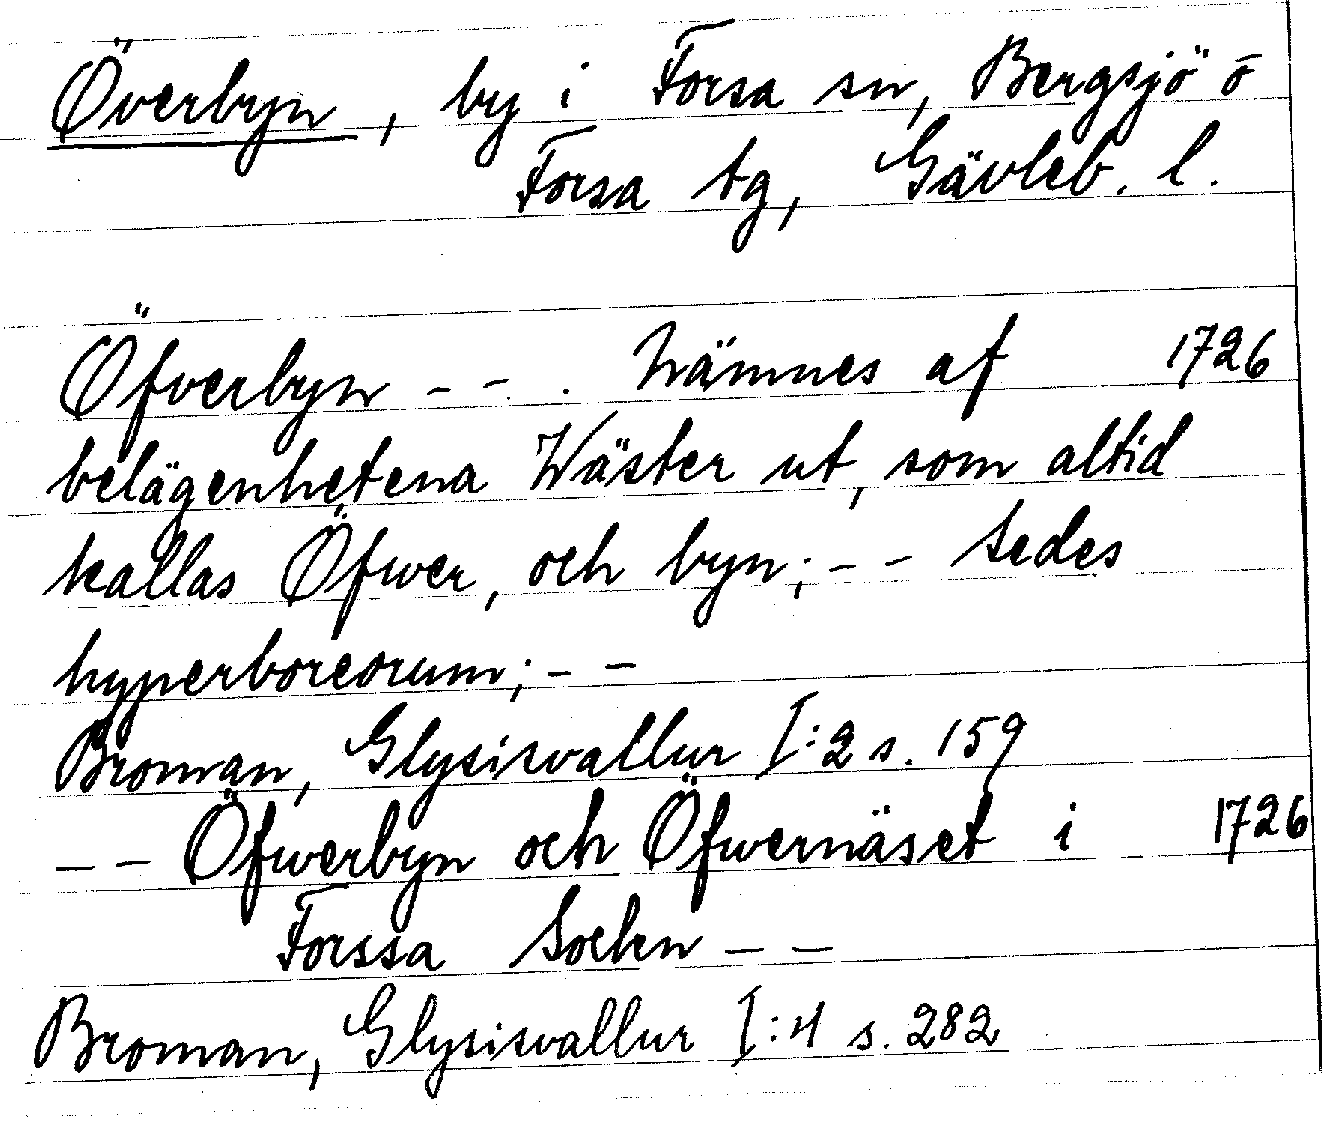 Överbyn, by i Forsa sn, Bergsjö o
Forsa tg, Gävleb. l.
Öfverbyn - - . Nämnes af 1726
belägenhetena Wäster ut, som altid
kallas Öfwer, och byn; - - Sedes
hyperboreorum; - -
Broman, Glysisvallur I:2 s. 159
- - Öfwerbyn och Öfwernäset i 1726
Forssa Sochn - -
Broman, Glysisvallur I:4 s. 282